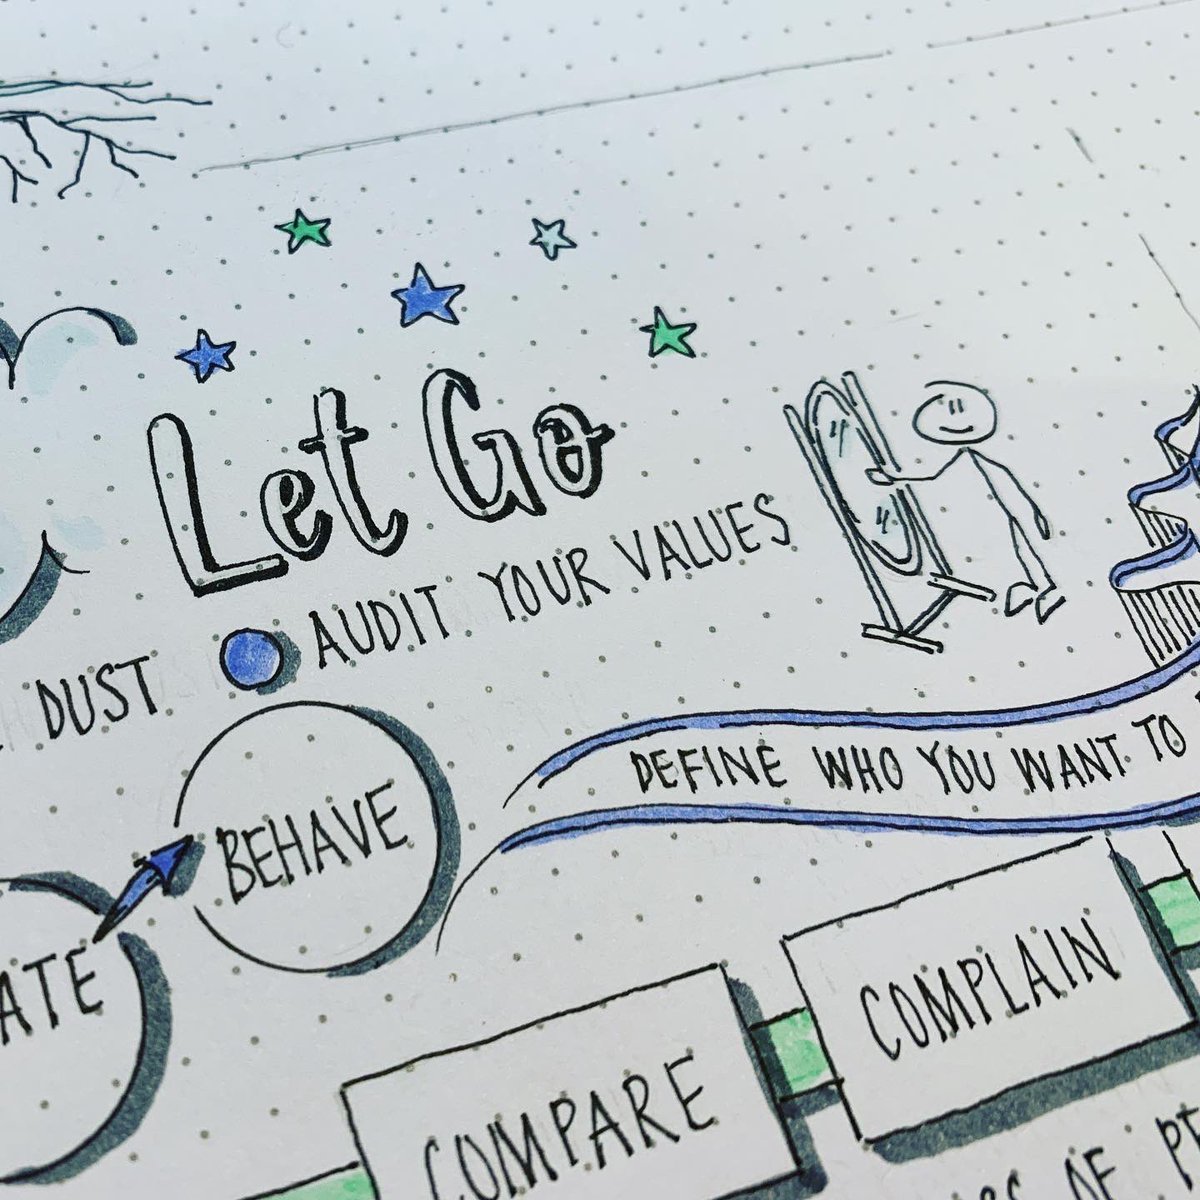 Let Go
DUST
AUDIT YOUR VALUES
DEFINE WHO YOU WANT TO
BEHAVE
COMPLAIN
COMPARE
OF